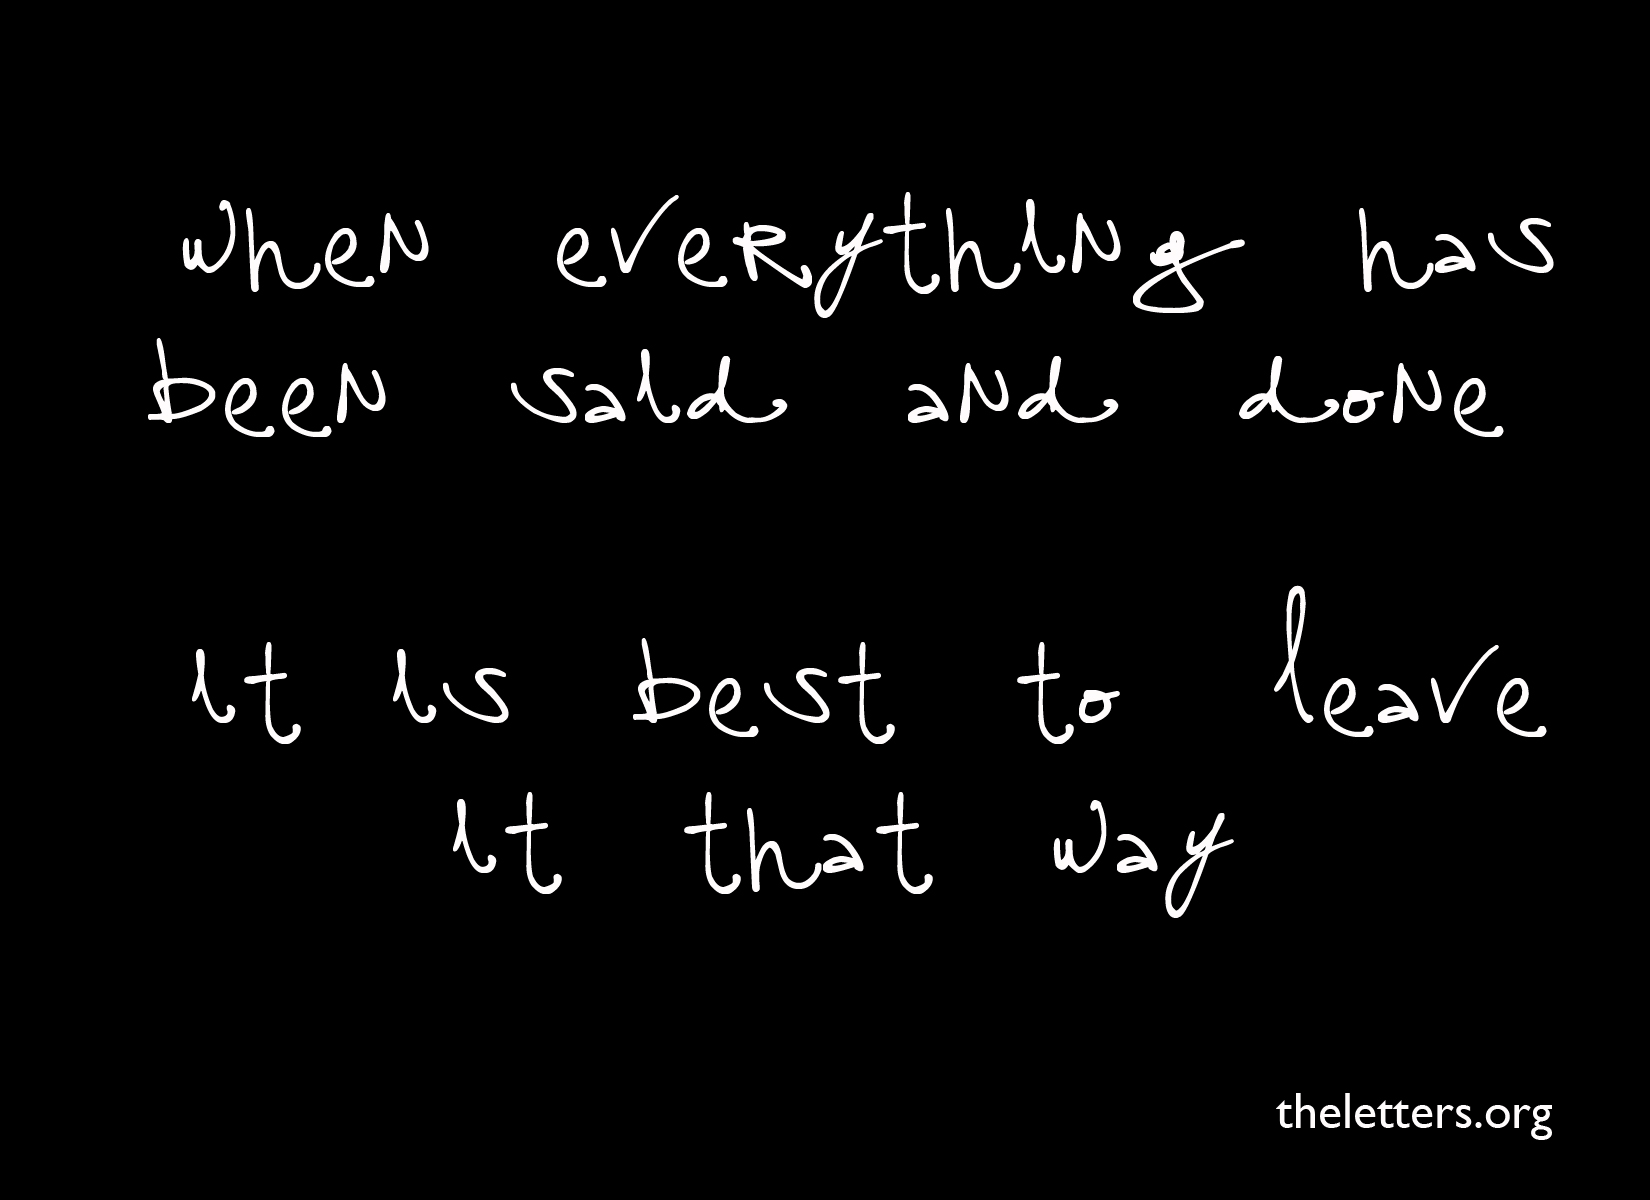 when everything has
been said and done
it is best to leave
it that way
theletters.org